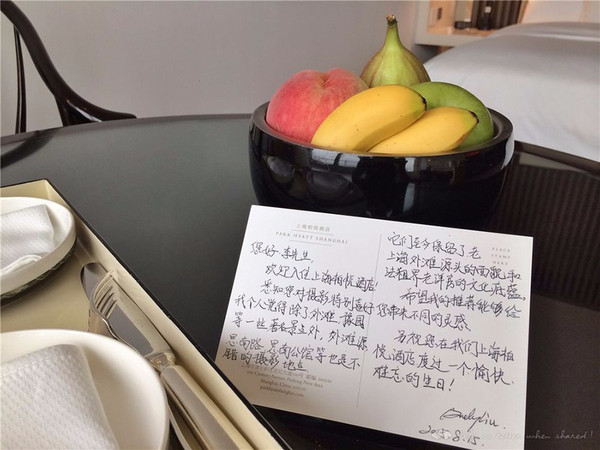 上海柏悦酒店
PARK HYATT SHANGHAI
您好 李先生
欢迎入住上海柏悦酒店
您知您对摄影特别喜好
我个人觉得除了外滩、豫园
等一些著名景点外，外滩源
思南路、思南公馆等也是不
错的摄影地点
Century Avenue, Pudong New Area
Shanghai, China
它们至今保留了老
上海外滩源头的面貌，和
法租界老洋房的文化底蕴。
希望我的推荐能够给
您带来不同的灵感
另祝您在我们上海柏
悦酒店度过一个愉快
难忘的生日！
2015.8.15.
PLACE
STAMP
HERE
when shared!